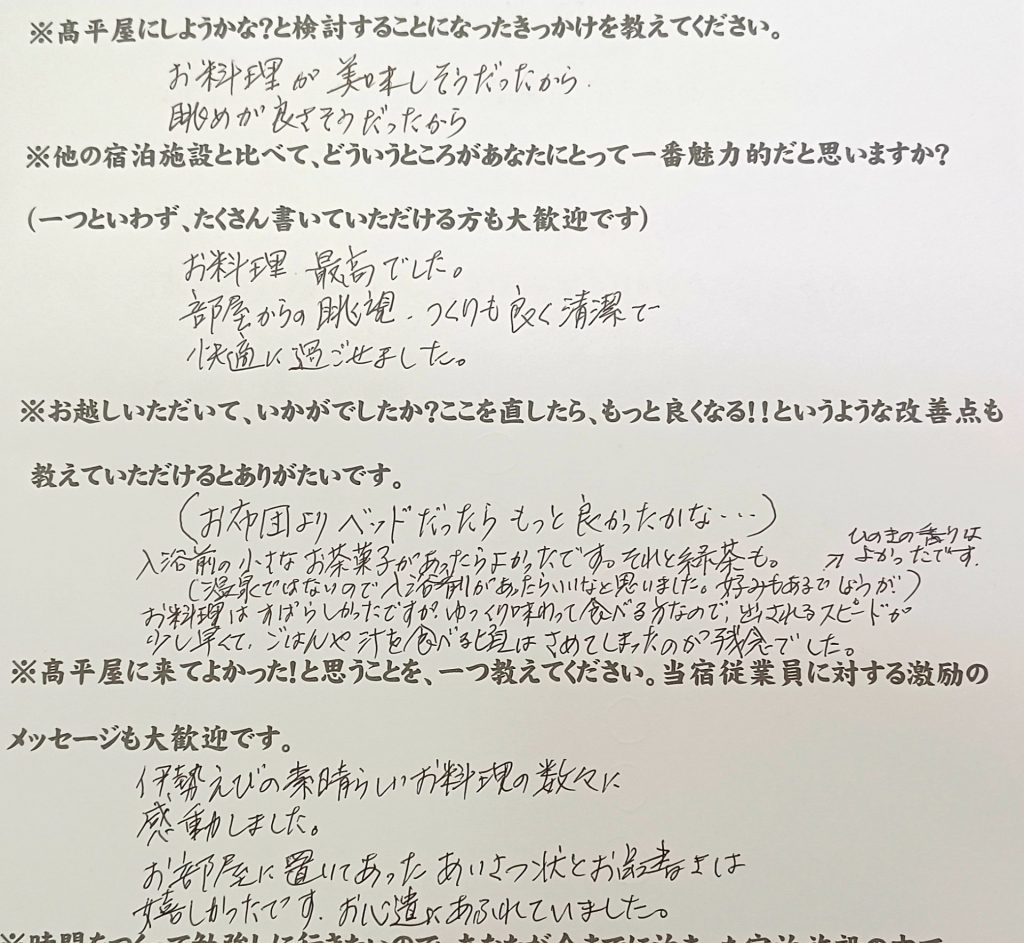 ※髙平屋にしようかな?と検討することになったきっかけを教えてください。
お料理が美味しそうだったから.
眺めが良さそうだったから
※他の宿泊施設と比べて、どういうところがあなたにとって一番魅力的だと思いますか?
(一つといわず、たくさん書いていただける方も大歓迎です)
お料理 最高でした。
部屋からの眺望. つくりも良く清潔で
快適に過ごせました。
※お越しいただいて、いかがでしたか?ここを直したら、もっと良くなる!!というような改善点も
教えていただけるとありがたいです。
(お布団よりベッドだったらもっと良かったかな・・・)
入浴前の小さなお茶菓子があったらよかったです。それと緑茶も。
↗ ひのきの香りは
よかったです。
(温泉ではないので入浴剤があったらいいなと思いました。好みもあるでしょうが)
お料理はすばらしかったですが、ゆっくり味わって食べる方なので、出されるスピードが
少し早くて、ごはんや汁を食べる頃はさめてしまったのが残念でした。
※髙平屋に来てよかった!と思うことを、一つ教えてください。当宿従業員に対する激励の
メッセージも大歓迎です。
伊勢えびの素晴らしいお料理の数々に
感動しました。
お部屋に置いてあったあいさつ状とお
嬉しかったです. お心遣いにあふれていました。